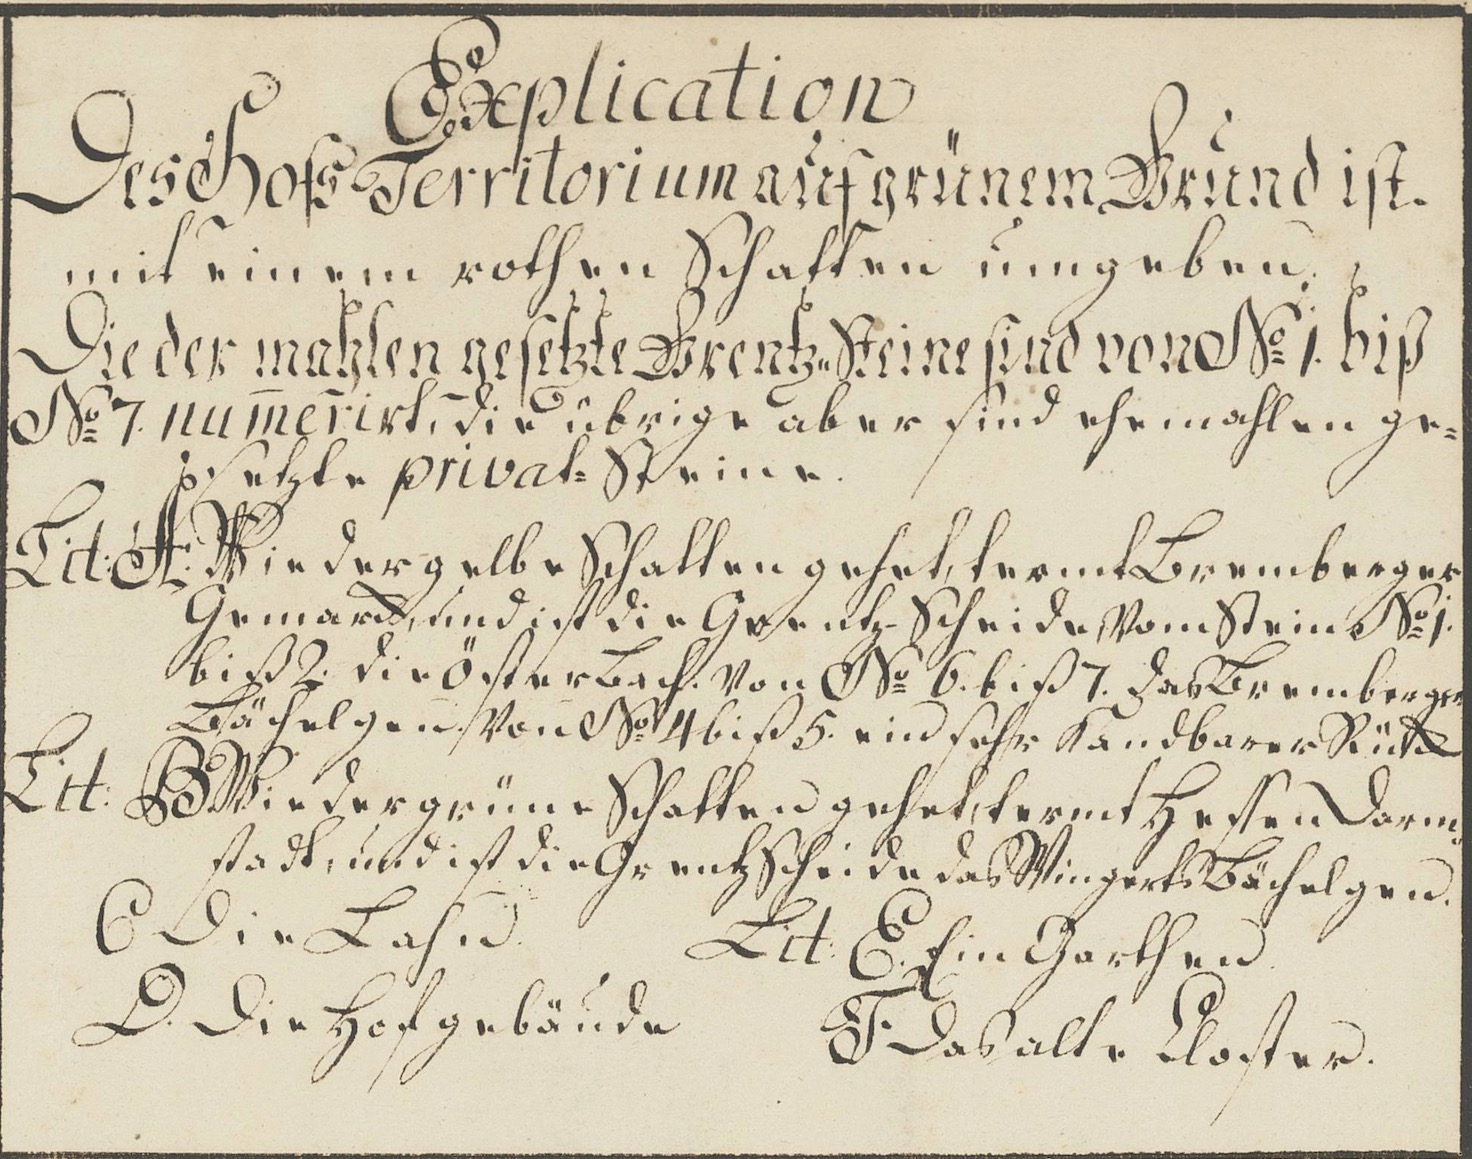 Explication
Des Hofs Territorium auf grünem Grund ist
mit einem rothen Schatten umgeben.
Die der mahlen gesetzte Grentz=Steine sind von No 1. biß
No 7. num̅erirt, die übrige aber sind ehemahlen ge=
setzte privat=Steine.
Lit: A: Wie der gelbe Schatten gehet, termt Bremberger
Gemarck, und ist die Grentz=Scheide, Vom Stein No 1.
biß 2. die Österbach. Von No 6. biß 7. das Bremberger
Bächelgen, Von No 4 biß 5. ein sehr Kandbarer Rück
Lit: B Wie der grüne Schatten gehet, termt Hessen Darm=
stadt, und ist die Grentz Scheide das Wingerts Bächelgen.
C Die Lahn. Lit: E. Ein Garthen.
D. Die Hofgebäude F. Das alte Closter.